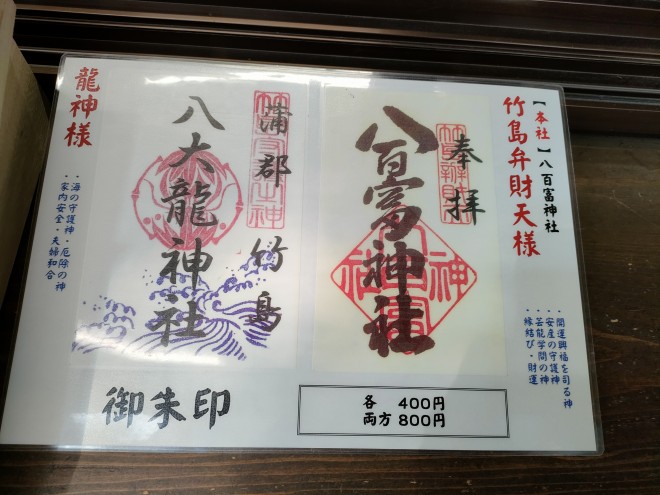 【本社】八百富神社
竹島弁財天様
・開運興福を司る神
・安産の守護神
・芸能学問の神
・縁結び・財運
奉拝
八百富神社
龍神様
・海の守護神・厄除の神
・家内安全・夫婦和合
蒲郡 竹島
八大龍神社
御朱印
各 400円
両方 800円